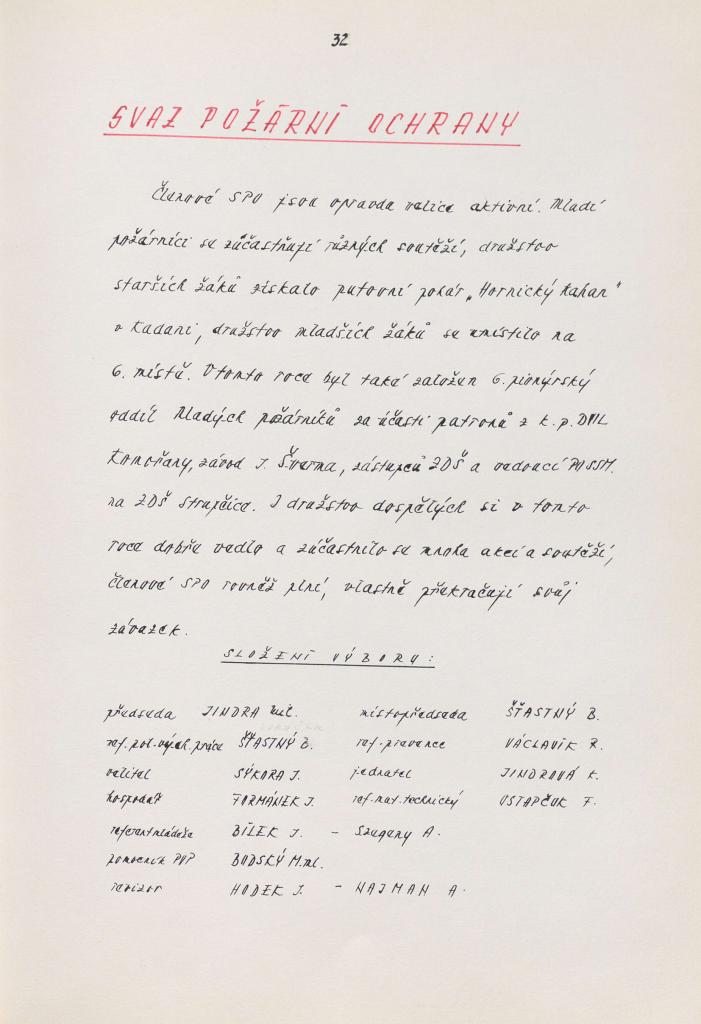 32
SVAZ POŽÁRNÍ OCHRANY
Členové SPO jsou opravdu velice aktivní. Mladí
požárníci se zúčastňují různých soutěží, družstvo
starších žáků získalo putovní pohár „Hornický kahan"
v Kadani, družstvo mladších žáků se umístilo na
6. místě. V tomto roce byl také založen 6. pionýrský
oddíl Mladých požárníků za účasti patronů z k.p. DVIL
Komořany, závod J. Šverma, zástupců ZDŠ a vedoucí PO SSM.
na ZDŠ Strupčice. I družstvo dospělých si v tomto
roce dobře vedlo a zúčastnilo se mnoha akcí a soutěží,
členové SPO rovněž plní, vlastně překračují svůj
závazek.
SLOŽENÍ VÝBORU:
předseda JINDRA místopředseda ŠŤASTNÝ B.
ref. pol. vých. práce ŠŤASTNÝ B. ref. prevence VÁCLAVÍK R.
velitel SÝKORA J. jednatel JINDROVÁ K.
hospodář FORMÁNEK J. ref. mat. technický OSTAPČUK F.
referent mládeže BÍLEK J. - Szugany A.
pomocník PVP BUDSKÝ M. ml.
revizor HODEK J. - NAJMAN A.